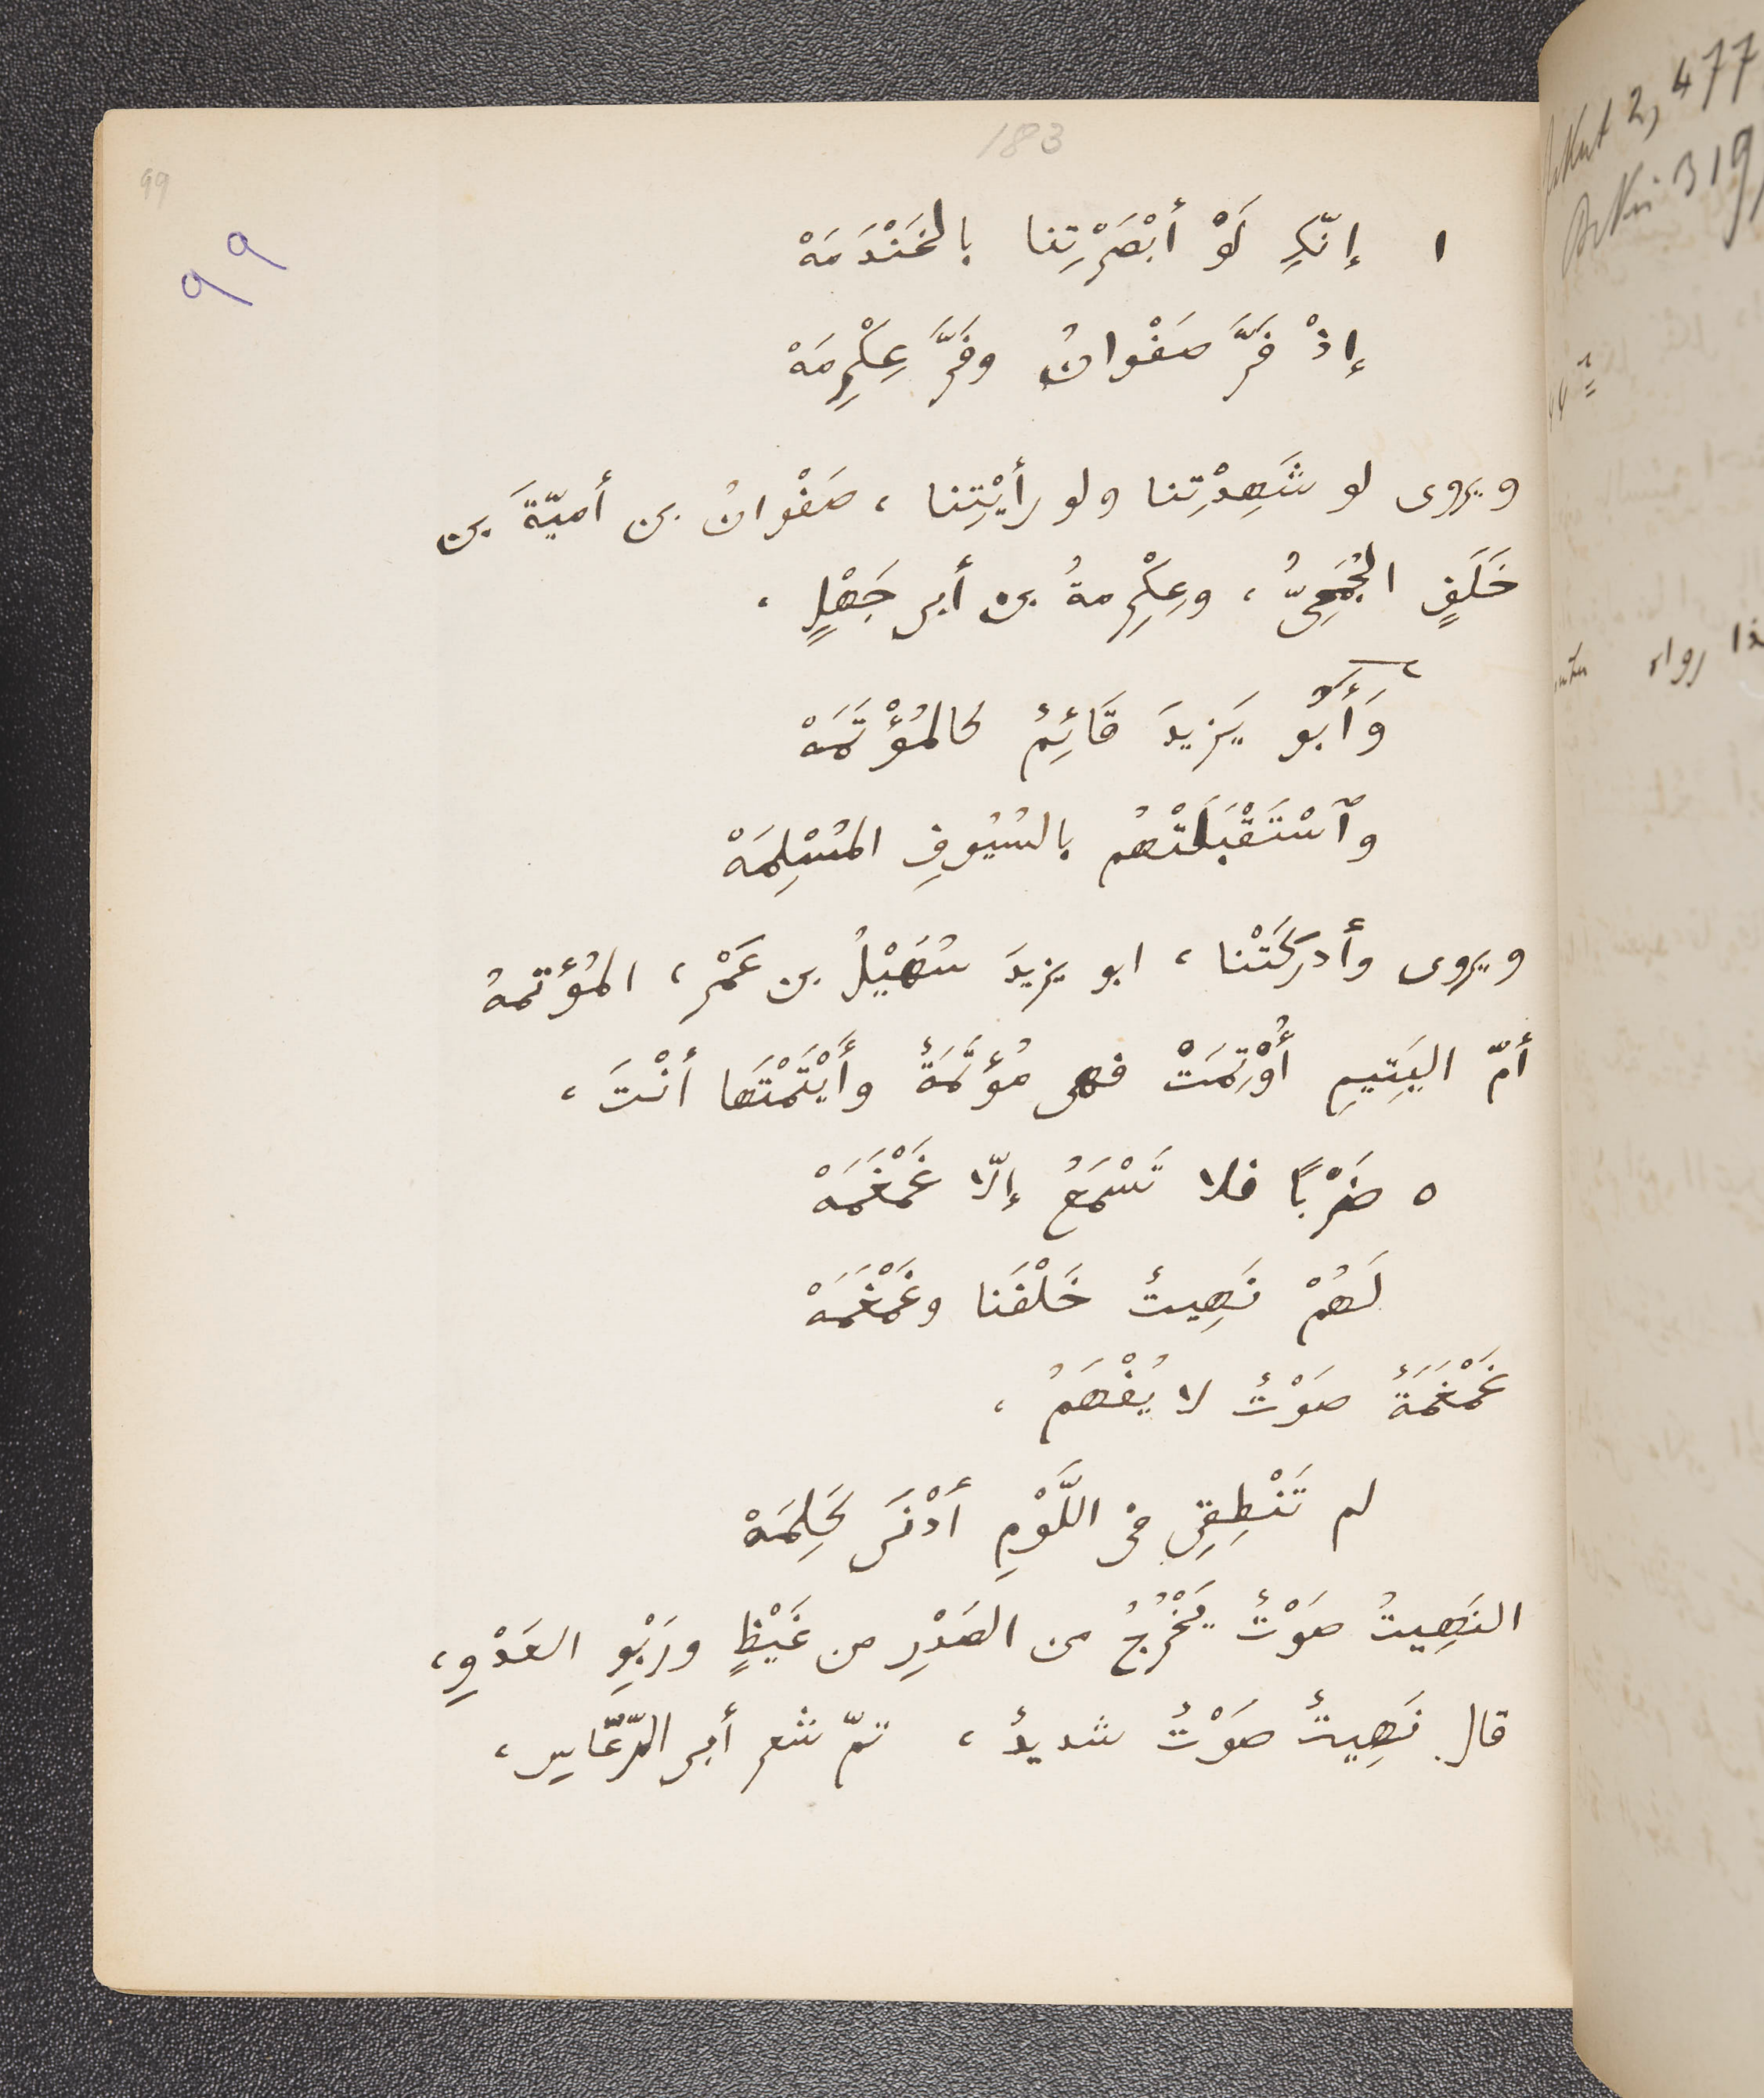 183
99
٩٩
١ إنّكِ لَوْ أبْصَرْتِنا بالخَنْدَمَهْ
إذْ فَرَّ صَفْوانُ وفَرَّ عِكْرِمَهْ
ويروى لو شَهِدْتِنا ولو رأيْتِنا ، صَفْوانُ بن أميّةَ بن
خَلَفٍ الجُمَحِىُّ ، وعِكْرِمةُ بن أبى جَهْلٍ ،
وَأَبُو يَزِيدَ قَائِمٌ كالمُؤْتَمَهْ
وٱسْتَقْبَلَتْهُم بالسُيُوفِ المُسْلِمَهْ
ويروى وأدركَتْنا ، ابو يزيدَ سُهَيْلُ بن عَمْر ، المُؤتمهُ
أمّ اليَتِيمِ أُوْتِمَتْ فهى مُؤتَمَةٌ وأَيْتَمْتَها أنْتَ ،
٥ ضَرْبًا فلا تَسْمَعُ إلّا غَمْغَمَهْ
لَهُمْ نَهِيتٌ خَلْفَنَا وغَمْغَمَهْ
غَمْغَمَةٌ صَوْتٌ لا يُفْهَمُ ،
لم تَنْطِقِى فى اللَّوْمِ أدْنَى كَلِمَهْ
النَهِيتُ صَوْتٌ يَخْرُجُ من الصَدْرِ من غَيْظٍ ورَبْوِ العَدْوِ ،
قال نَهِيتٌ صَوْتٌ شديدٌ ، تمّ شعر أبى الرّعّاس ،
2, 477
رواه